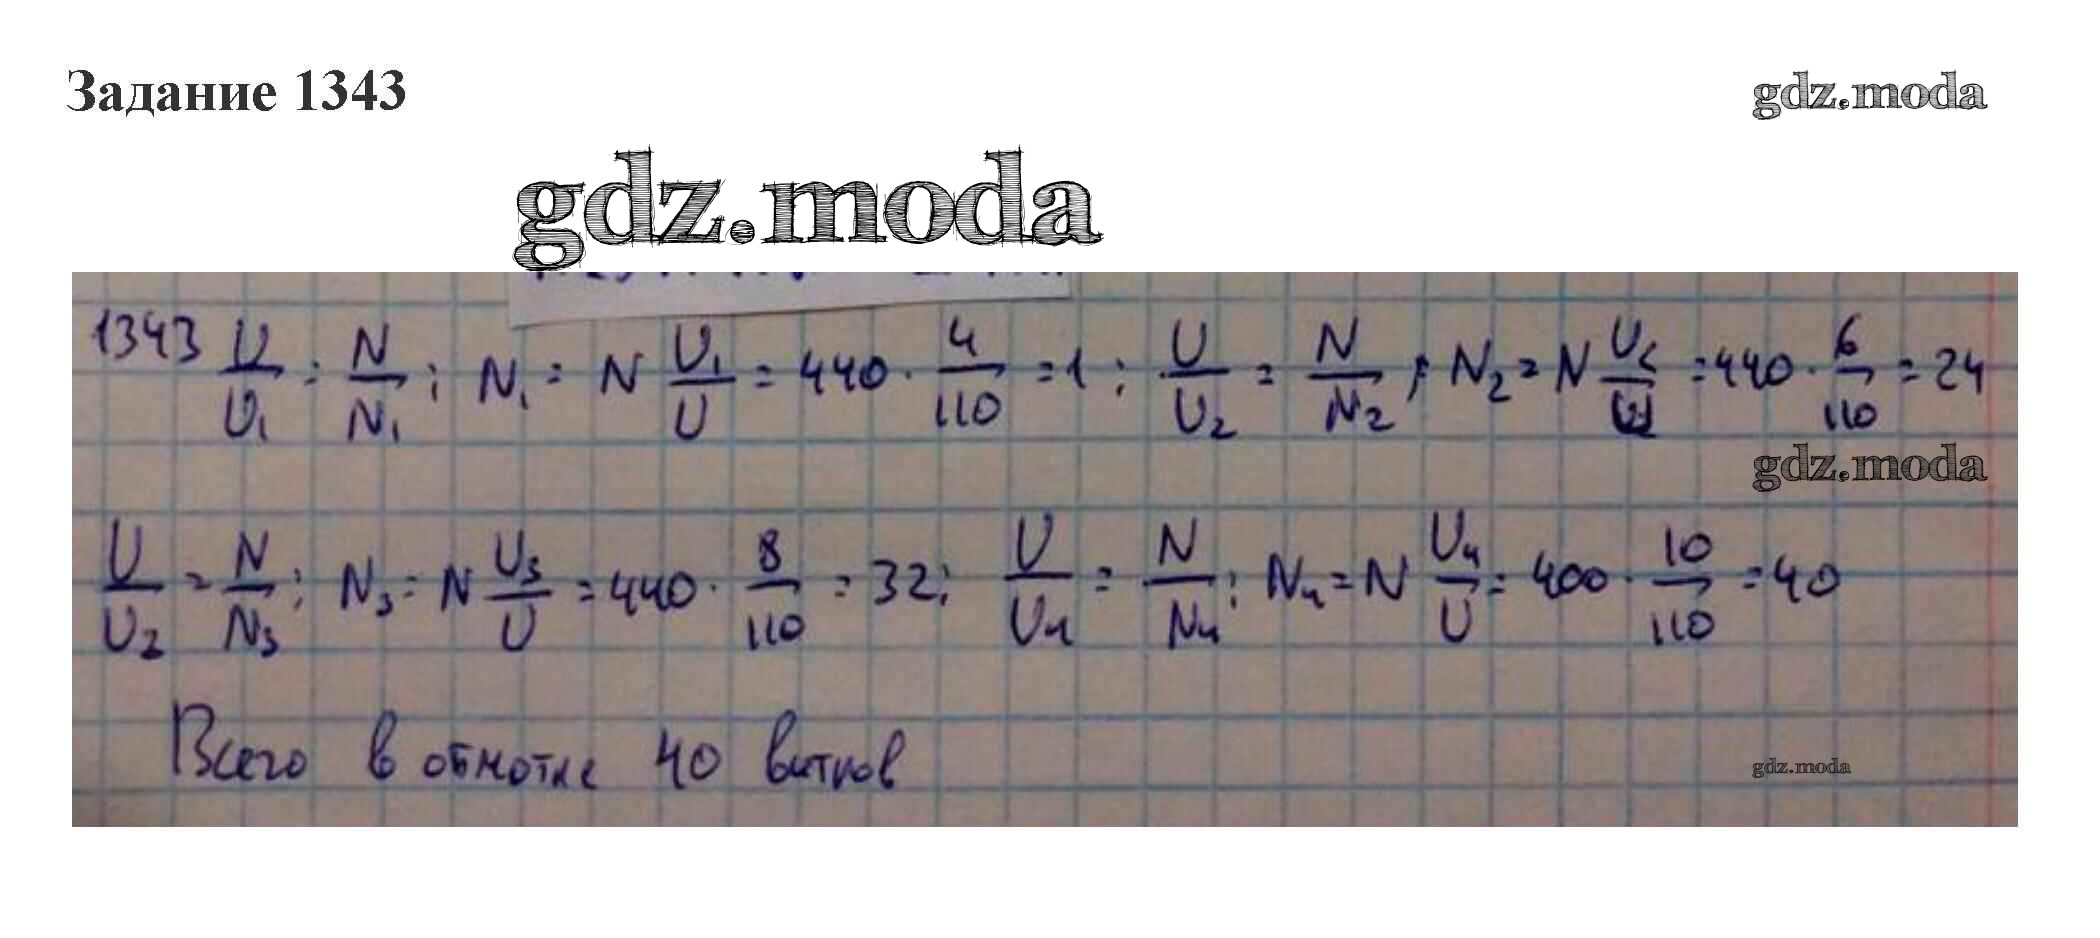 Задание 1343
gdz.moda
gdz.moda
1343 U/U₁ = N/N₁; N₁ = N U₁/U = 440 · 4/110 = 1; U/U₂ = N/N₂; N₂ = N U₂/U = 440 · 6/110 = 24
gdz.moda
U/U₂ = N/N₃; N₃ = N U₃/U = 440 · 8/110 = 32; U/U₄ = N/N₄; N₄ = N U₄/U = 400 · 10/110 = 40
Всего в обмотке 40 витков
gdz.moda